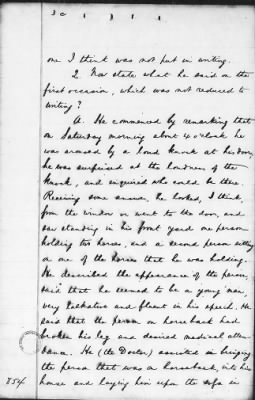 30
one I think was not put in writing.
Q. Now state what he said on the
first occasion, which was not reduced to
writing?
A. He commenced by remarking that
on Saturday morning about 4 o'clock he
was aroused by a loud knock at his door,
he was surprised at the loudness of the
knock, and enquired who could be there.
Receiving some answer, he looked, I think,
from the window or went to the door, and
saw standing in his front yard one person
holding two horses, and a second person sitting
on one of the horses that he was holding.
He described the appearance of the person,
said that he seemed to be a young man,
very talkative and fluent in his speech. He
said that the person on horseback had
broken his leg and desired medical atten-
dance. He (the Doctor) assisted in bringing
the person that was on horseback, into his
house and laying him upon the sofa in
854